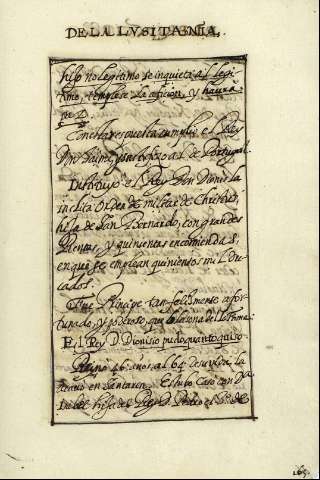 DE LA LVSITANIA,
hijo no legitimo se inquieta al legi-
timo, templese la aficion, y haura
paz.
Con esta respuesta cumplio el Rey
Don Jaime, y satisfizo al de Portugal.
Instituyo el Rey Don Dionis la
inclita Orden de militar de Christus,
hija de San Bernardo, con grandes
Rentas, y quinientas encomiendas,
en que se emplean quinientos mil Du-
cados.
Fue Principe tan felizmente afor-
tunado, y poderoso, que
El Rey D. Dionisio pudo quanto quiso
Reyno 46. años, al 64 de su vida, la
en Santaren. Estubo Casado con D.ª
Isabel hija del Rey D. Pedro el 3.º de
165